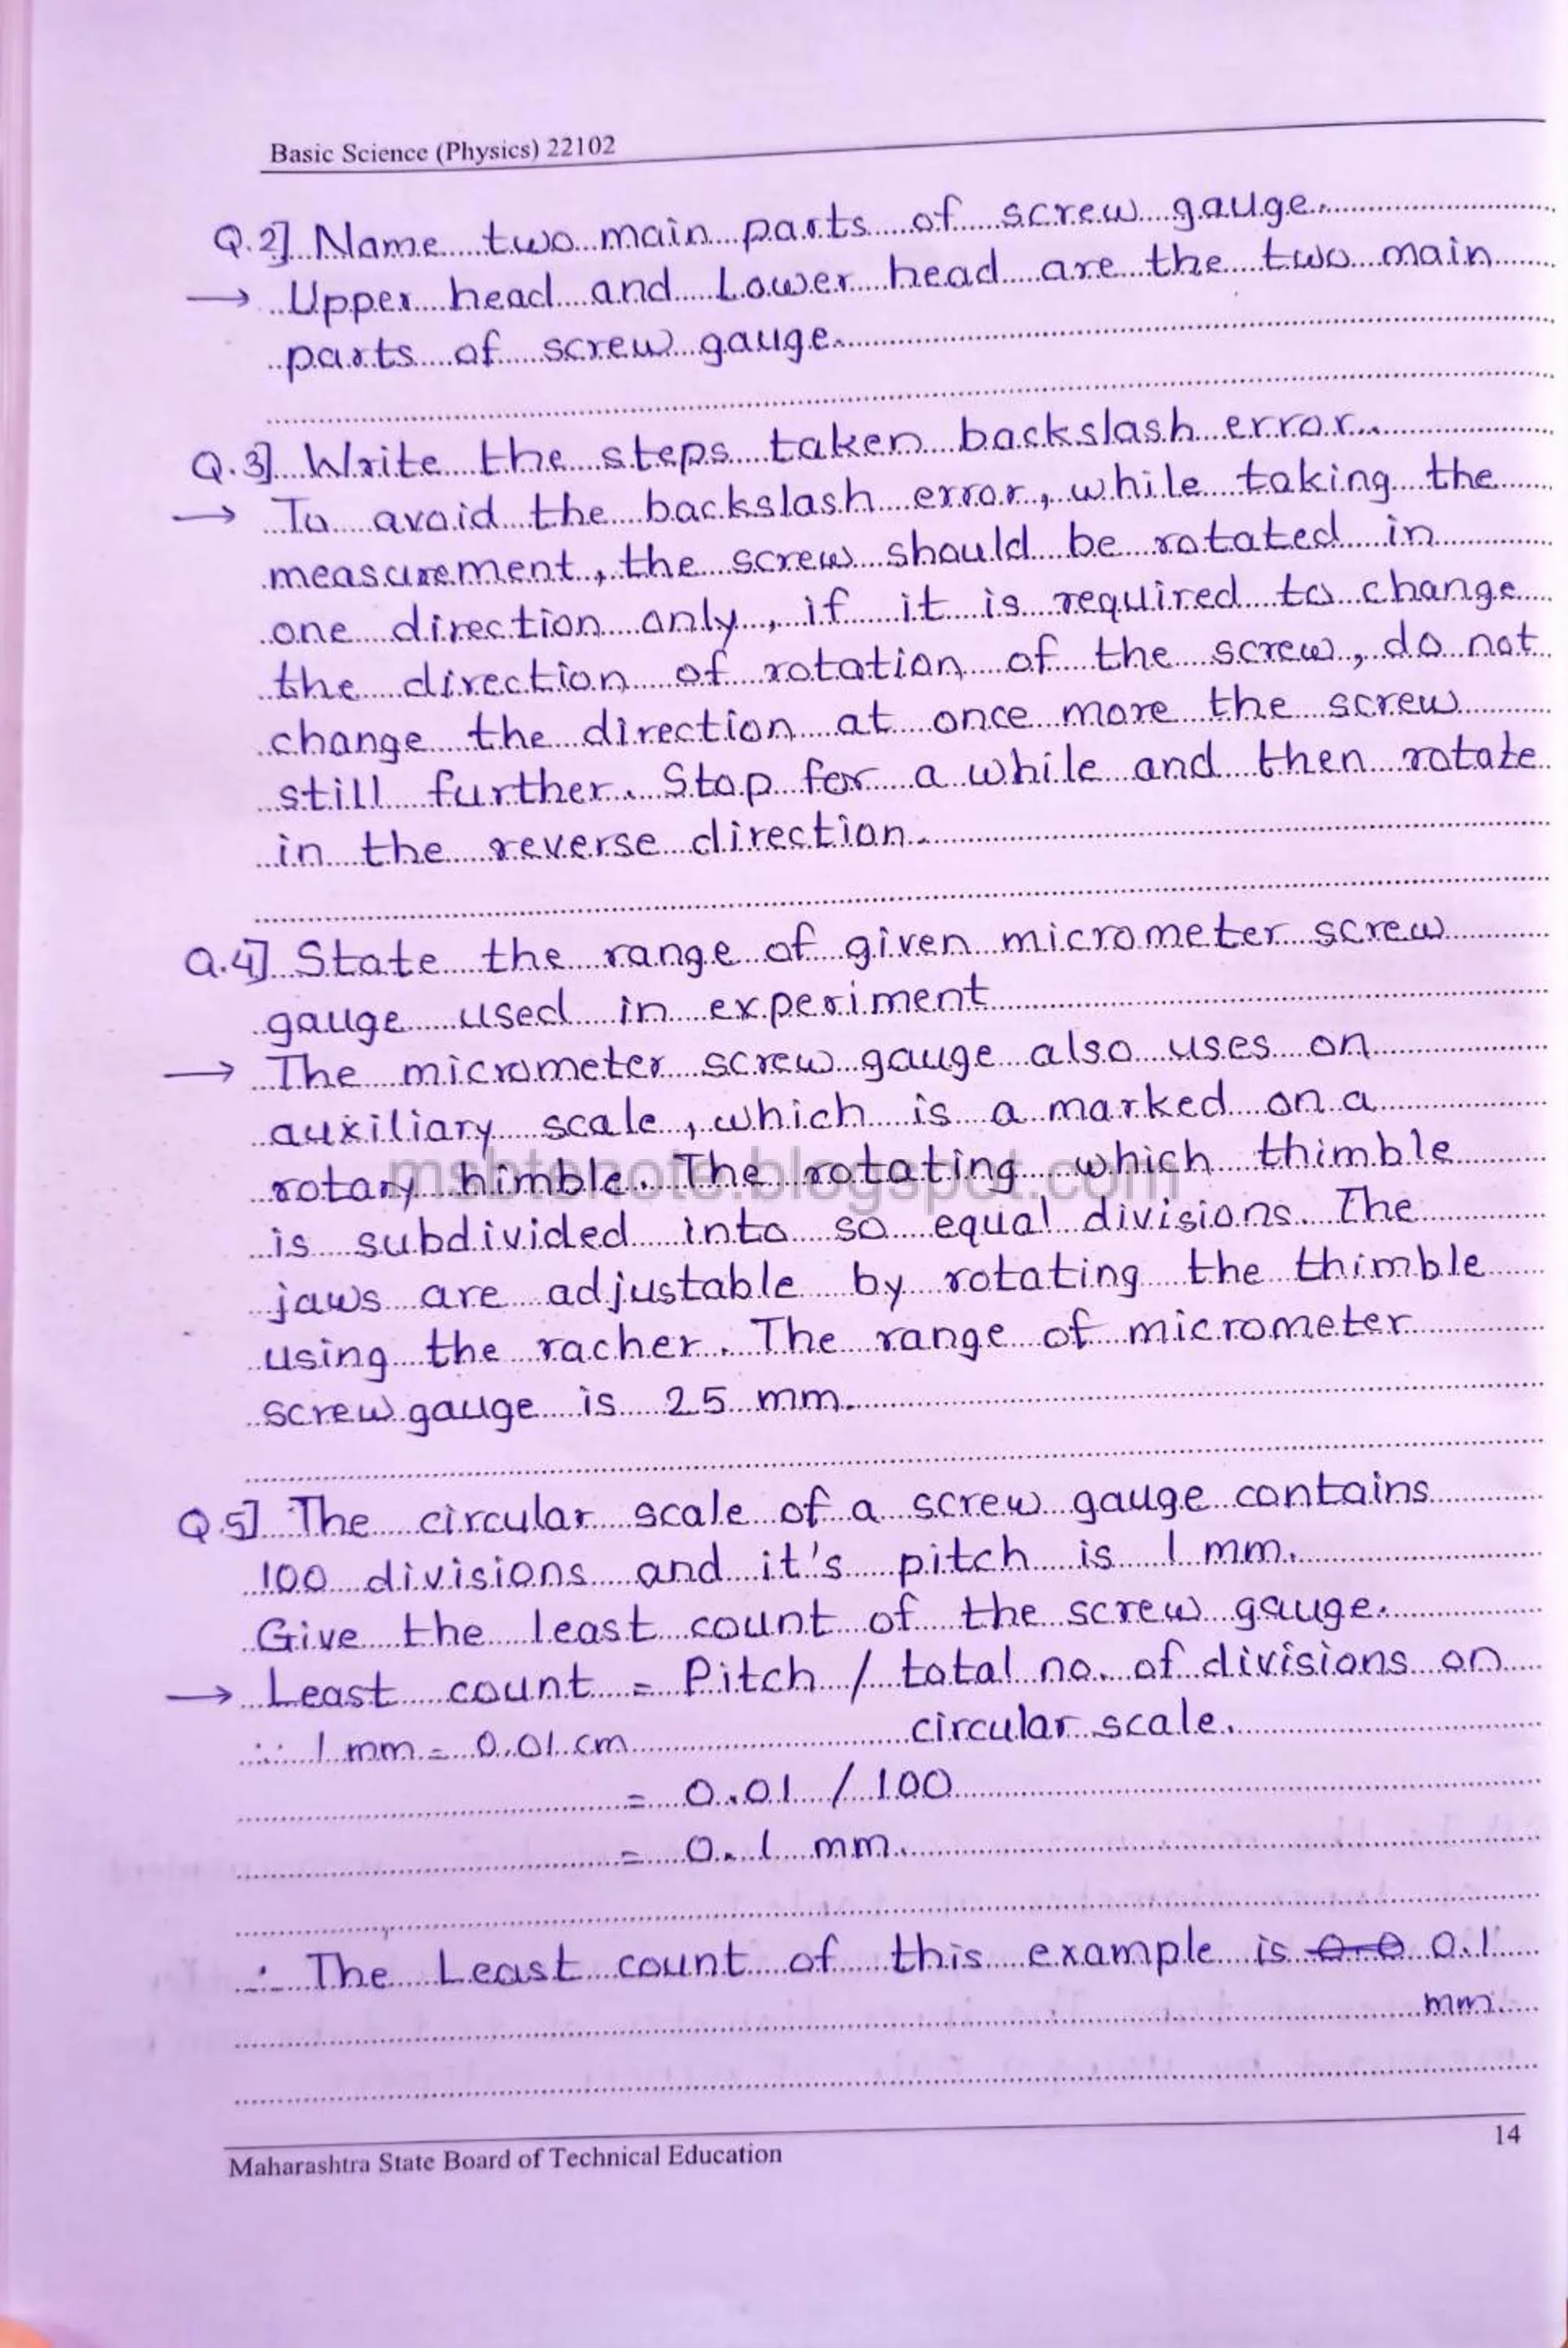 Basic Science (Physics) 22102
Q.2] Name two main parts of screw gauge.
→ Upper head and Lower head are the two main
parts of screw gauge.
Q.3] Write the steps taken backslash error.
→ To avoid the backslash error, while taking the
measurement, the screw should be rotated in
one direction only, if it is required to change
the direction of rotation of the screw, do not
change the direction at once more the screw
still further. Stop for a while and then rotate
in the reverse direction.
Q.4] State the range of given micrometer screw
gauge used in experiment
→ The micrometer screw gauge also uses on
auxiliary scale, which is a marked on a
rotary himble. The rotating which thimble
msbtenote.blogspot.com
is subdivided into so equal divisions. The
jaws are adjustable by rotating the thimble
using the racher. The range of micrometer
screw gauge is 25 mm.
Q.5] The circular scale of a screw gauge contains
100 divisions and it's pitch is 1 mm.
Give the least count of the screw gauge.
→ Least count = Pitch / total no. of divisions on
circular scale.
∵ 1 mm = 0.01 cm
= 0.01 / 100
= 0.1 mm.
∴ The Least count of this example is 0.0 0.1
mm.
Maharashtra State Board of Technical Education
14